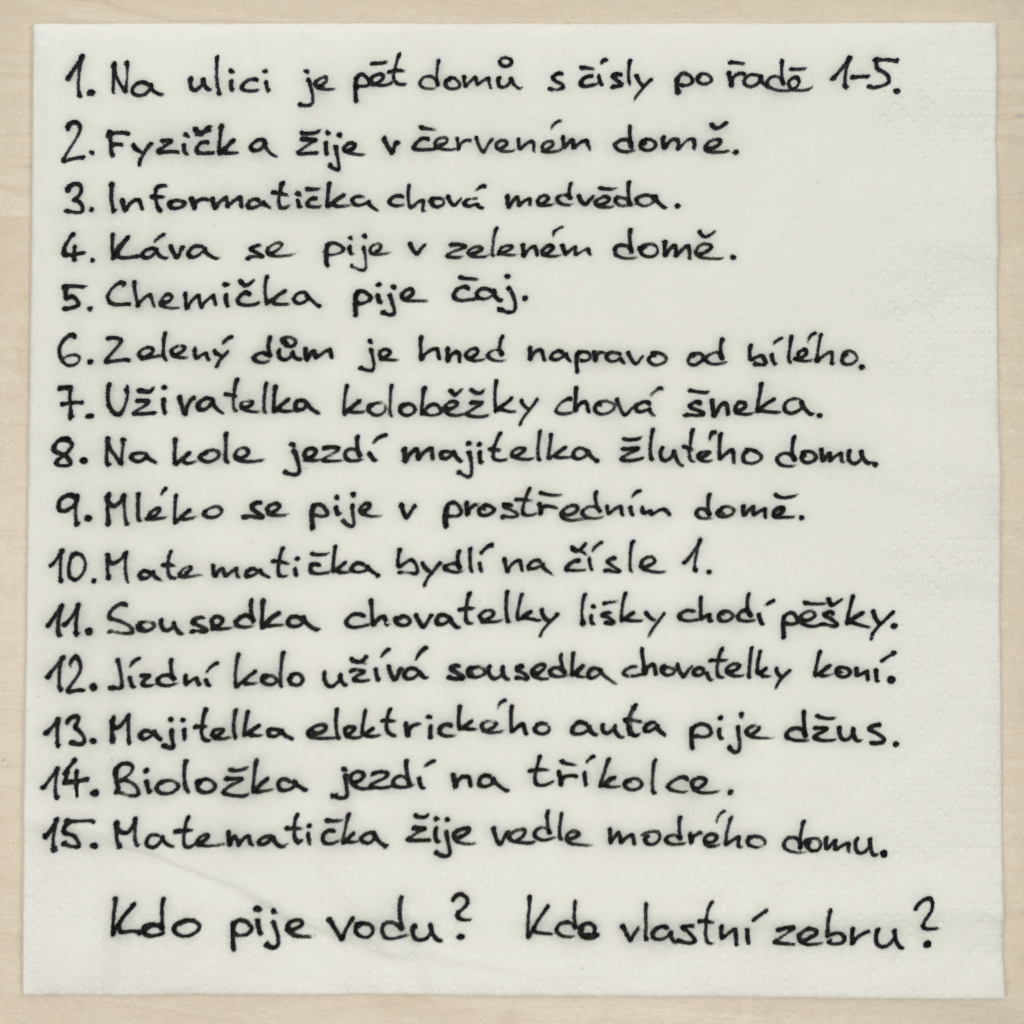 1. Na ulici je pět domů s čísly po řadě 1-5.
2. Fyzička žije v červeném domě.
3. Informatička chová medvěda.
4. Káva se pije v zeleném domě.
5. Chemička pije čaj.
6. Zelený dům je hned napravo od bílého.
7. Uživatelka koloběžky chová šneka.
8. Na kole jezdí majitelka žlutého domu.
9. Mléko se pije v prostředním domě.
10. Matematička bydlí na čísle 1.
11. Sousedka chovatelky lišky chodí pěšky.
12. Jízdní kolo užívá sousedka chovatelky koní.
13. Majitelka elektrického auta pije džus.
14. Bioložka jezdí na tříkolce.
15. Matematička žije vedle modrého domu.
Kdo pije vodu? Kdo vlastní zebru?